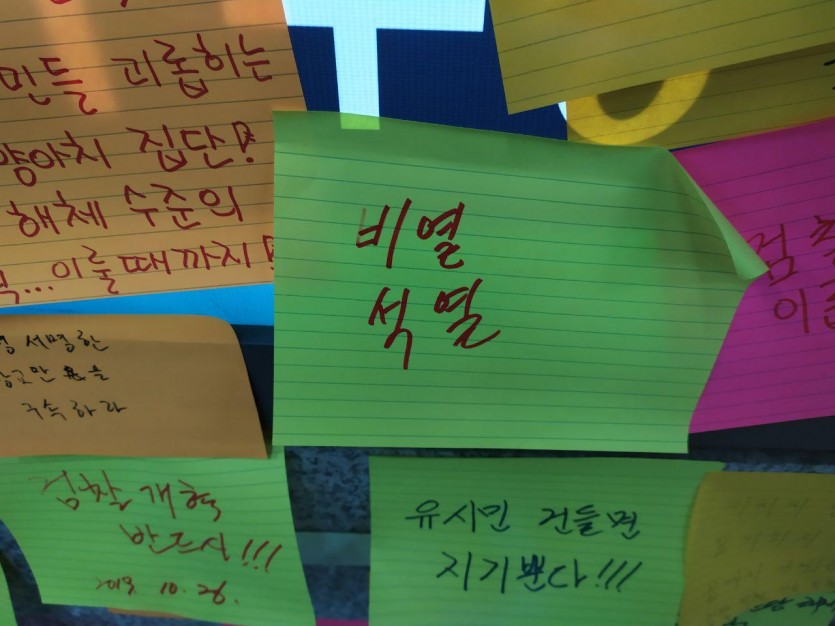 T
괴롭히는
양아치 집단!
해체 수준의
...이룰때까지!
비열
석열
서명한
구속하라
검찰개혁
반드시!!!
2019. 10. 26.
유시민 건들면
지기뿐다!!!